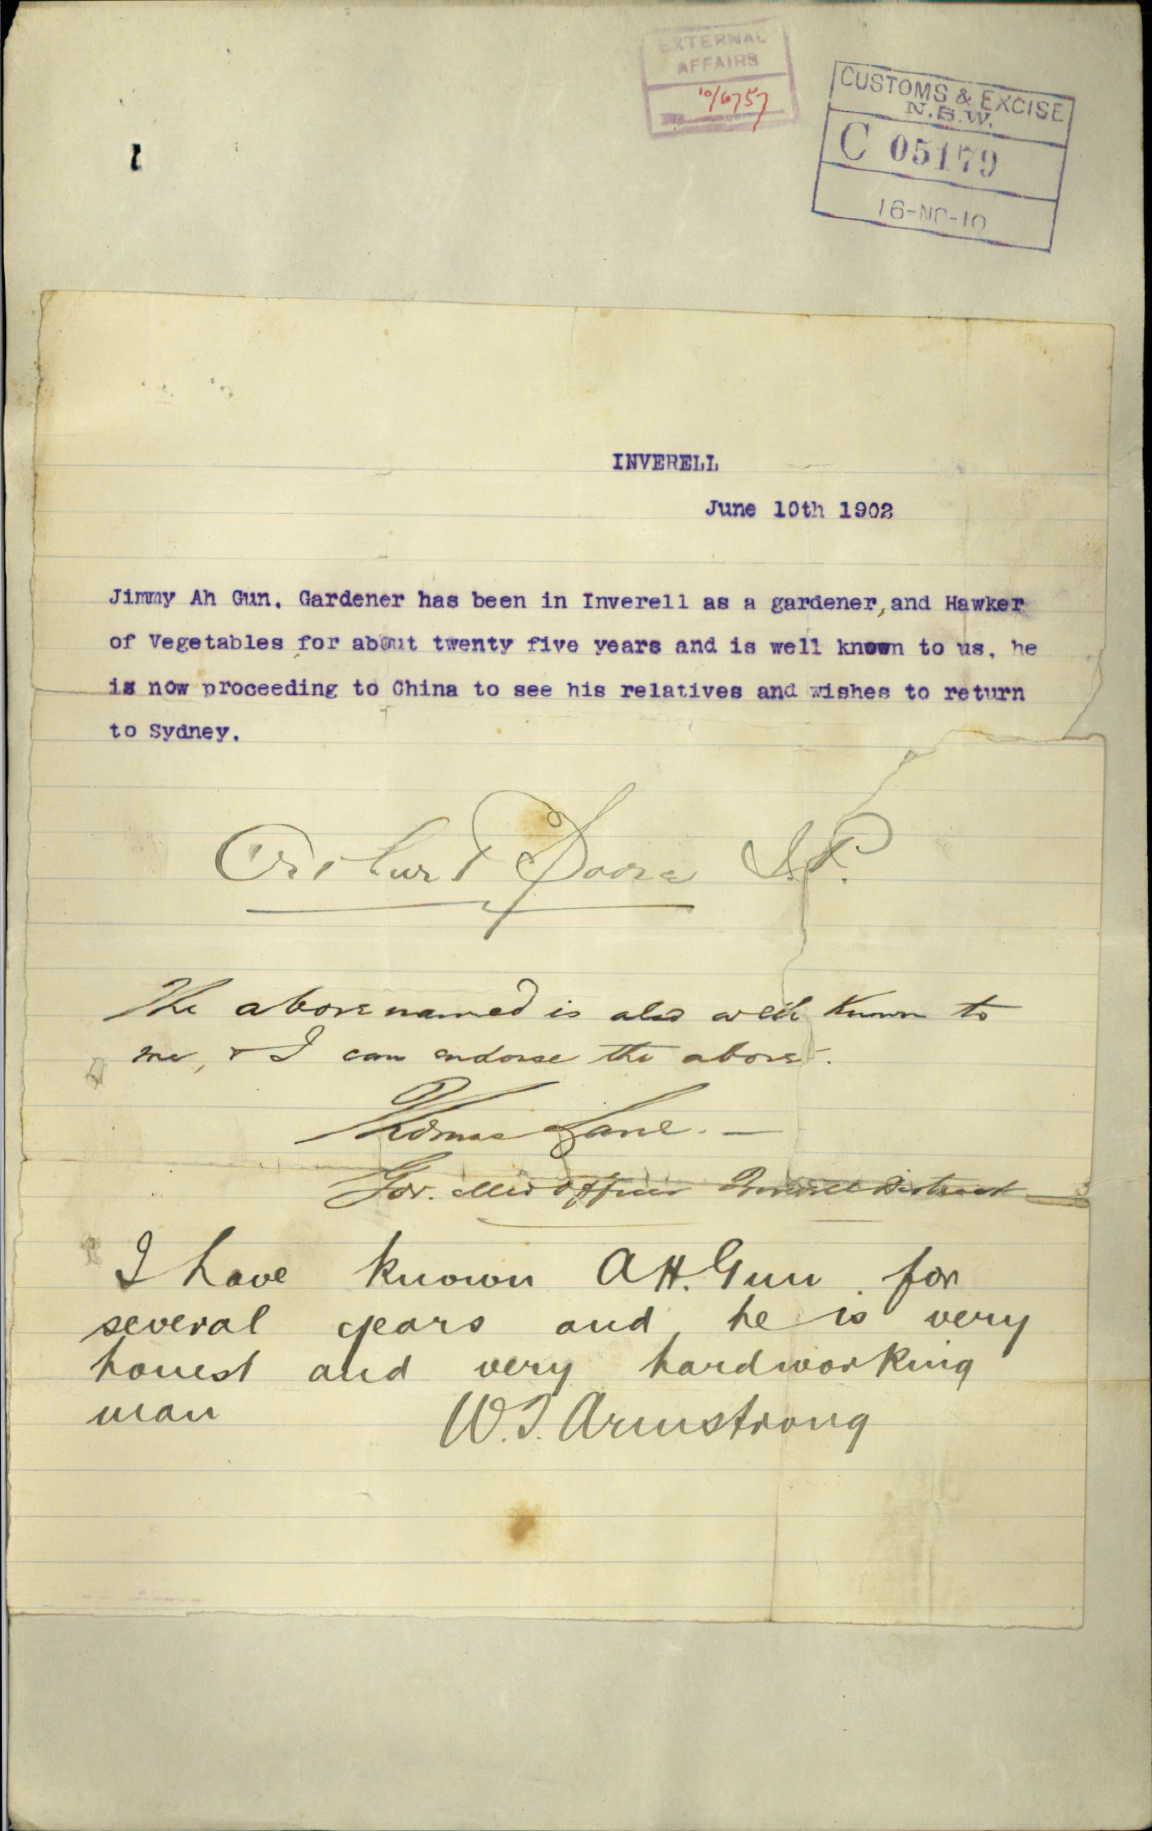 EXTERNAL
AFFAIRS
10/6757
CUSTOMS & EXCISE
N.S.W.
C 05179
16-NO-10
INVERELL
June 10th 1902
Jimmy Ah Gun. Gardener has been in Inverell as a gardener, and Hawker
of Vegetables for about twenty five years and is well known to us, he
is now proceeding to China to see his relatives and wishes to return
to Sydney.
Arthur J.P.
The abovenamed is also well known to
me, & I can endorse the above.
Thomas Lane. —
Gov. Med Officer Inverell District
I have known AH. Gun for
several years and he is very
honest and very hardworking
man W.J. Armstrong